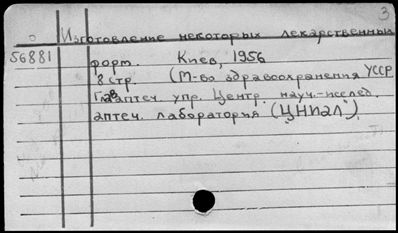 3
Изготовление некоторых лекарственных
56881 форм. Киев, 1956
8 стр. (М-во здравоохранения УССР
Глав. аптеч. упр. Центр. науч.-исслед.
аптеч. лаборатория (ЦНИАЛ)